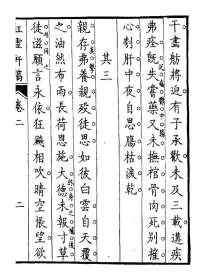 干畫舫將迎有子承歡未及三載遘疾
弗痊既失嘗藥又未撫棺骨肉死別摧
心刳肝中夜自思膓枯淚乾
其三
親存弗養親歿徒思如彼白雲自天覆
之油然布雨長荷恩施大德未報寸草
徒滋願言永依狂飈相吹晴空悵望欲
紅雪軒稿 卷二 二